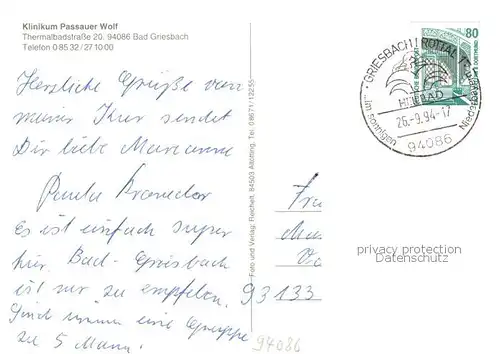 Klinikum Passauer Wolf
Thermalbadstraße 20, 94086 Bad Griesbach
Telefon 0 85 32 / 27 10 00
Herzliche Grüße von
meiner Kur sendet
Dir liebe Marianne
Paula
Es ist einfach super
hier. Bad-Griesbach
ist nur zu empfehlen.
Sind immer eine Gruppe
zu 5 Mann!
Foto und Verlag: Fischer, 84503 Altötting, Tel. 08671/12255
80
GRIESBACH I ROTTAL
HEILBAD
26.-9.94-17
...im sonnigen
94086
Fra
93133
94086
privacy protection
Datenschutz